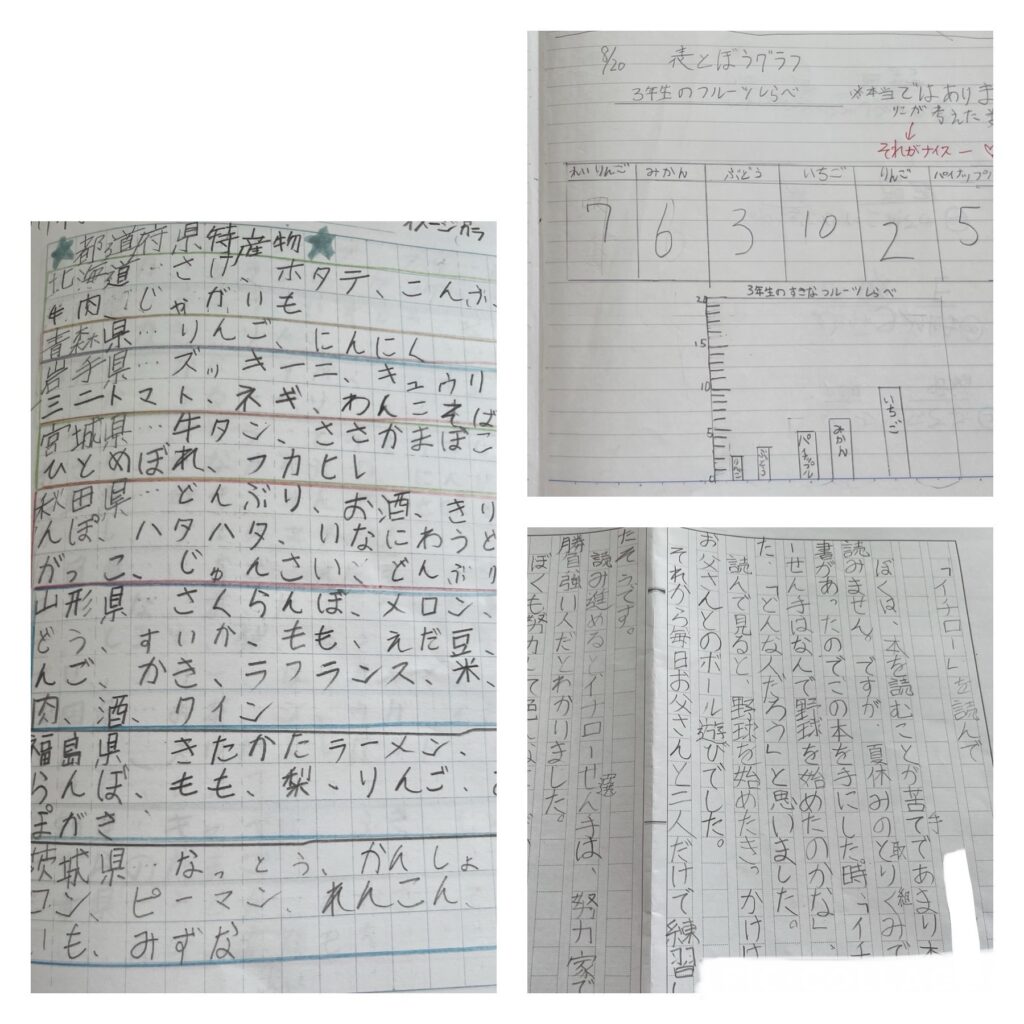 イメージカラ
★都道府県特産物★
北海道…さけ、ホタテ、こんぶ、
牛肉、じゃがいも
青森県…りんご、にんにく
岩手県…ズッキーニ、キュウリ
ミニトマト、ネギ、わんこそば
宮城県…牛タン、ささかまぼこ
ひとめぼれ、フカヒレ
秋田県…どんぶり、お酒、きり
んぽ、ハタハタ、いなにわうど
がっこ、じゅんさい、どんぶり
山形県…さくらんぼ、メロン、
どう、すいか、もも、えだ豆、
んご、かき、ラフランス、米、
肉、酒、ワイン
福島県 きたかたラーメン、
らんぼ、もも、梨、りんご、
ぽがき
茨城県…なっとう、かんしょ
コン、ピーマン、れんこん、
ーも、みずな
8/20 表とぼうグラフ
3年生のフルーツしらべ
※本当ではありま
が考えた
↓
それがナイスー♡
みかん ぶどう いちご りんご パイナップ
7 6 3 10 2 5
3年生のすきなフルーツしらべ
20
15
10
5
0
りんご ぶどう パイナップル みかん いちご
「イチロー」を読んで
ぼくは、本を読むことが苦手であまり本
読みません。ですが、夏休みのとりくみで
取組
書があったのでこの本を手にした時、「イチ
ーせん手はなんで野球を始めたのかな」、
た、「どんな人だろう」と思いました。
読んで見ると、野球を始めたきっかけは
お父さんとのボール遊びでした。
それから毎日お父さんと二人だけで練習し
たそうです。
読み進めるとイチローせん手は、努力家で
選
勝負強い人だとわかりました。
ぼくも努力して